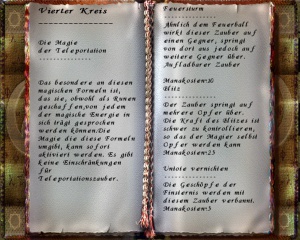 Vierter Kreis
--------------------
Die Magie
der Teleportation
---------------
Das besondere an diesen
magischen Formeln ist,
das sie, obwohl als Runen
geschaffen,von jeden
der magische Energie in
sich trägt gesprochen
werden können.Die
Magie die diese Formeln
umgibt, kann sofort
aktiviert werden. Es gibt
keine Einschränkungen
für
Teleportationszauber.
Feuersturm
---------------
Ähnlich dem Feuerball
wirkt dieser Zauber auf
einen Gegner, springt
von dort aus jedoch auf
weitere Gegner über.
Aufladbarer Zauber
Manakosten:
Blitz
---------------
Der Zauber springt auf
mehrere Opfer über.
Die Kraft des Blitzes ist
schwer zu kontrollieren,
so das der Magier selbst
Opfer werden kann
Manakosten:25
Untote vernichten
---------------
Die Geschöpfe der
Finsternis werden mit
diesem Zauber verbannt.
Manakosten: